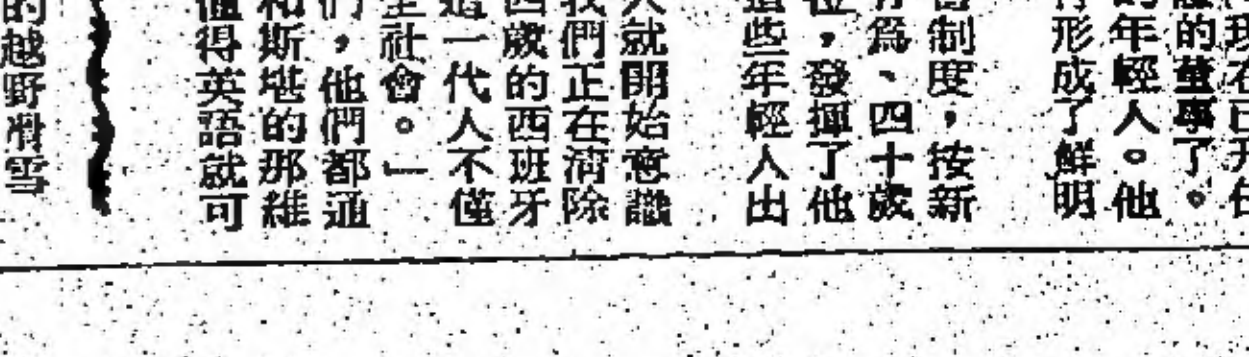 現在已升
的董事了。
的年輕人。他
形成了鮮明
制度，按新
爲、四十歲
位，發揮了他
這些年輕人出
人就開始意識
我們正在清除
四歲的西班牙
這一代人不僅
社會。」
們，他們都通
和斯堪的那維
得英語就可
的越野滑雪